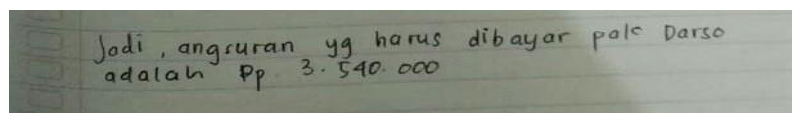 Jadi, angsuran yg harus dibayar pak Darso
adalah Rp. 3.540.000